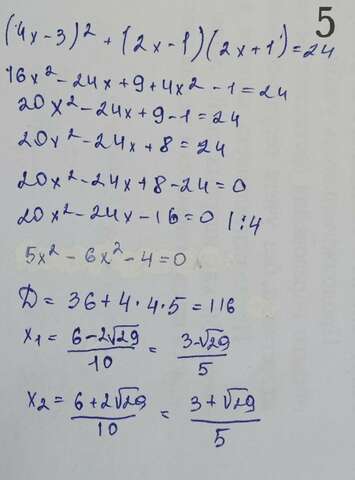 5
(4x-3)² + (2x-1)(2x+1)=24
16x²-24x+9+4x²-1=24
20x²-24x+9-1=24
20x²-24x+8=24
20x²-24x+8-24=0
20x²-24x-16=0 |:4
5x²-6x²-4=0
D=36+4·4·5=116
x₁ = (6-2√29)/10 = (3-√29)/5
x₂ = (6+2√29)/10 = (3+√29)/5